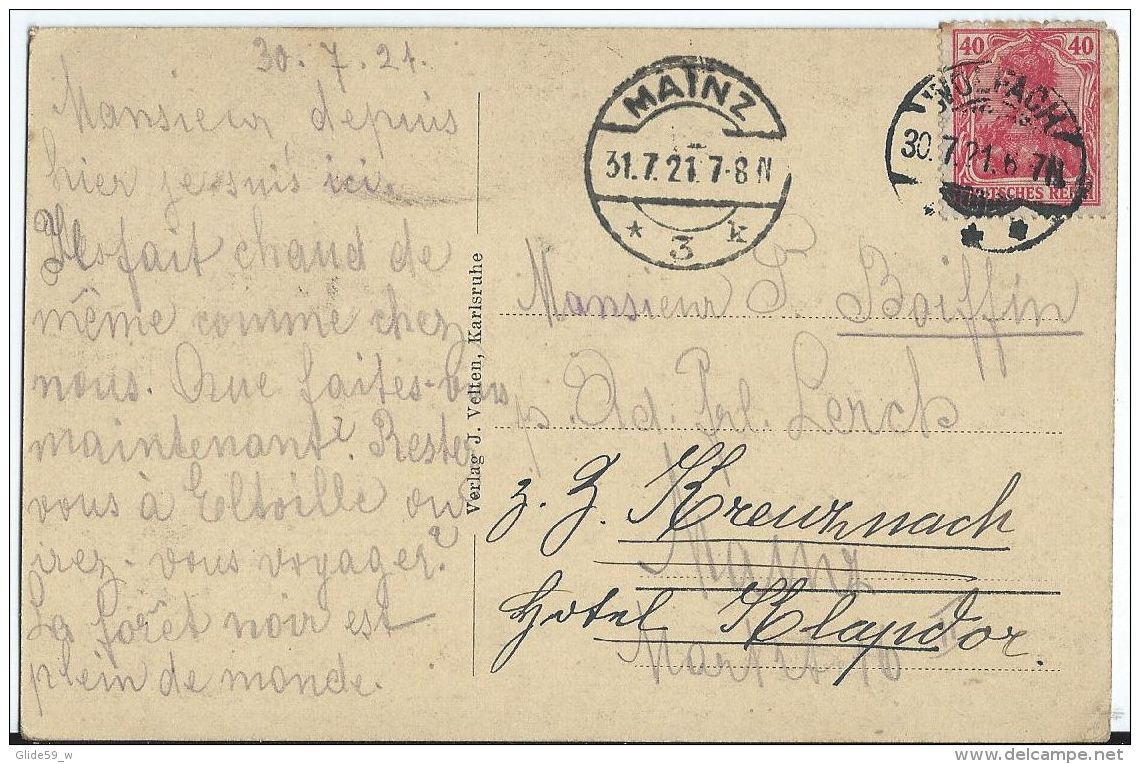 30. 7. 21.
Monsieur depuis
hier je suis ici.
Il fait chaud de
même comme chez
nous. Que faites-vous
maintenant? Restez
vous à Eltville ou
irez-vous voyager?
La forêt noir est
plein de monde.
Verlag J. Velten, Karlsruhe
MAINZ
31.7.21.7-8 N
* 3 k
40 40
DEUTSCHES REICH
WOLFACH
30.7.21.6-7N
Monsieur F. Boiffin
p. Ad. Frl. Lerch
z. Z. Kreuznach
Mainz
Hotel Klapdor.
Markt 10
Glide59_w
delcampe.net